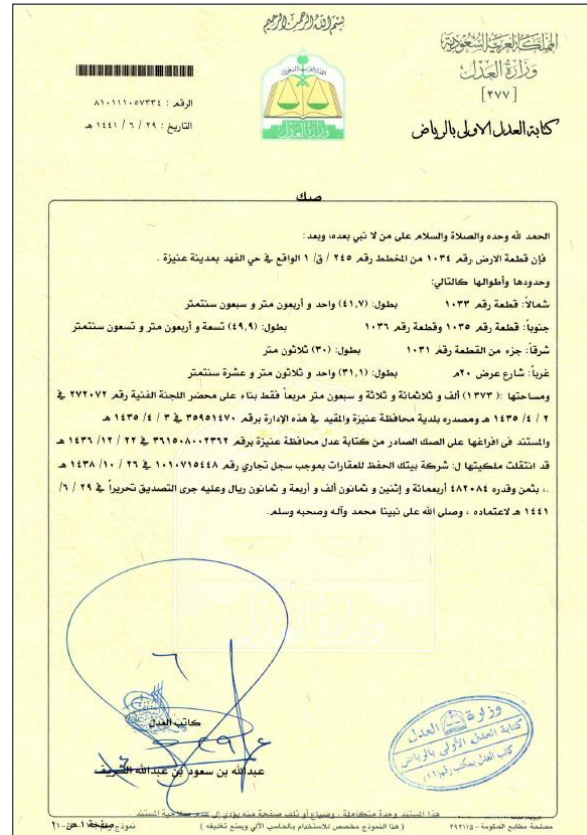 بسم الله الرحمن الرحيم
المملكة العربية السعودية
وزارة العدل
[٢٧٧]
كتابة العدل الاولى بالرياض
الرقم : ٨١٠١١١٠٥٧٣٣٤
التاريخ : ٢٩ / ٦ / ١٤٤١ هـ
وزارة العدل
صك
الحمد لله وحده والصلاة والسلام على من لا نبي بعده، وبعد:
فإن قطعة الارض رقم ١٠٣٤ من المخطط رقم ٢٤٥ / ق/ ١ الواقع في حي الفهد بمدينة عنيزة .
وحدودها وأطوالها كالتالي:
شمالاً: قطعة رقم ١٠٣٣ بطول: (٤١,٧) واحد و أربعون متر و سبعون سنتمتر
جنوباً: قطعة رقم ١٠٣٥ وقطعة رقم ١٠٣٦ بطول: (٤٩,٩) تسعة و أربعون متر و تسعون سنتمتر
شرقاً: جزء من القطعة رقم ١٠٣١ بطول: (٣٠) ثلاثون متر
غرباً: شارع عرض ٢٠م بطول: (٣١,١) واحد و ثلاثون متر و عشرة سنتمتر
ومساحتها :( ١٣٧٣) ألف و ثلاثمائة و ثلاثة و سبعون متر مربعاً فقط بناء على محضر اللجنة الفنية رقم ٢٧٢٠٧٢ في
٢ / ٤ / ١٤٣٥ هـ ومصدره بلدية محافظة عنيزة والمقيد في هذه الإدارة برقم ٣٥٩٥١٤٧٠ في ٣ / ٤ / ١٤٣٥ هـ
والمستند في افراغها على الصك الصادر من كتابة عدل محافظة عنيزة برقم ٣٦١٥٠٨٠٠٢٣٦٢ في ٢٢ / ١٢ / ١٤٣٦ هـ
قد انتقلت ملكيتها ل: شركة بيتك الحفظ للعقارات بموجب سجل تجاري رقم ١٠١٠٧١٥٤٤٨ في ٢٦ / ١٠ / ١٤٣٨ هـ
،. بثمن وقدره ٤٨٢٠٨٤ أربعمائة و إثنين و ثمانون ألف و أربعة و ثمانون ريال وعليه جرى التصديق تحريراً في ٢٩ / ٦/
١٤٤١ هـ لاعتماده ، وصلى الله على نبينا محمد وآله وصحبه وسلم.
كاتب العدل
عبدالله بن سعود بن عبدالله الشريف
وزارة العدل
كتابة العدل الأولى بالرياض
كاتب العدل بمكتب رقم (١٩)
هذا المستند وحدة متكاملة ، وضياع أو تلف صفحة منه يؤدي إلى عدم صلاحية المستند
مصلحة مطابع الحكومة - ٢٩٢١١٥
( هذا النموذج مخصص للاستخدام بالحاسب الآلي ويمنع تغليفه )